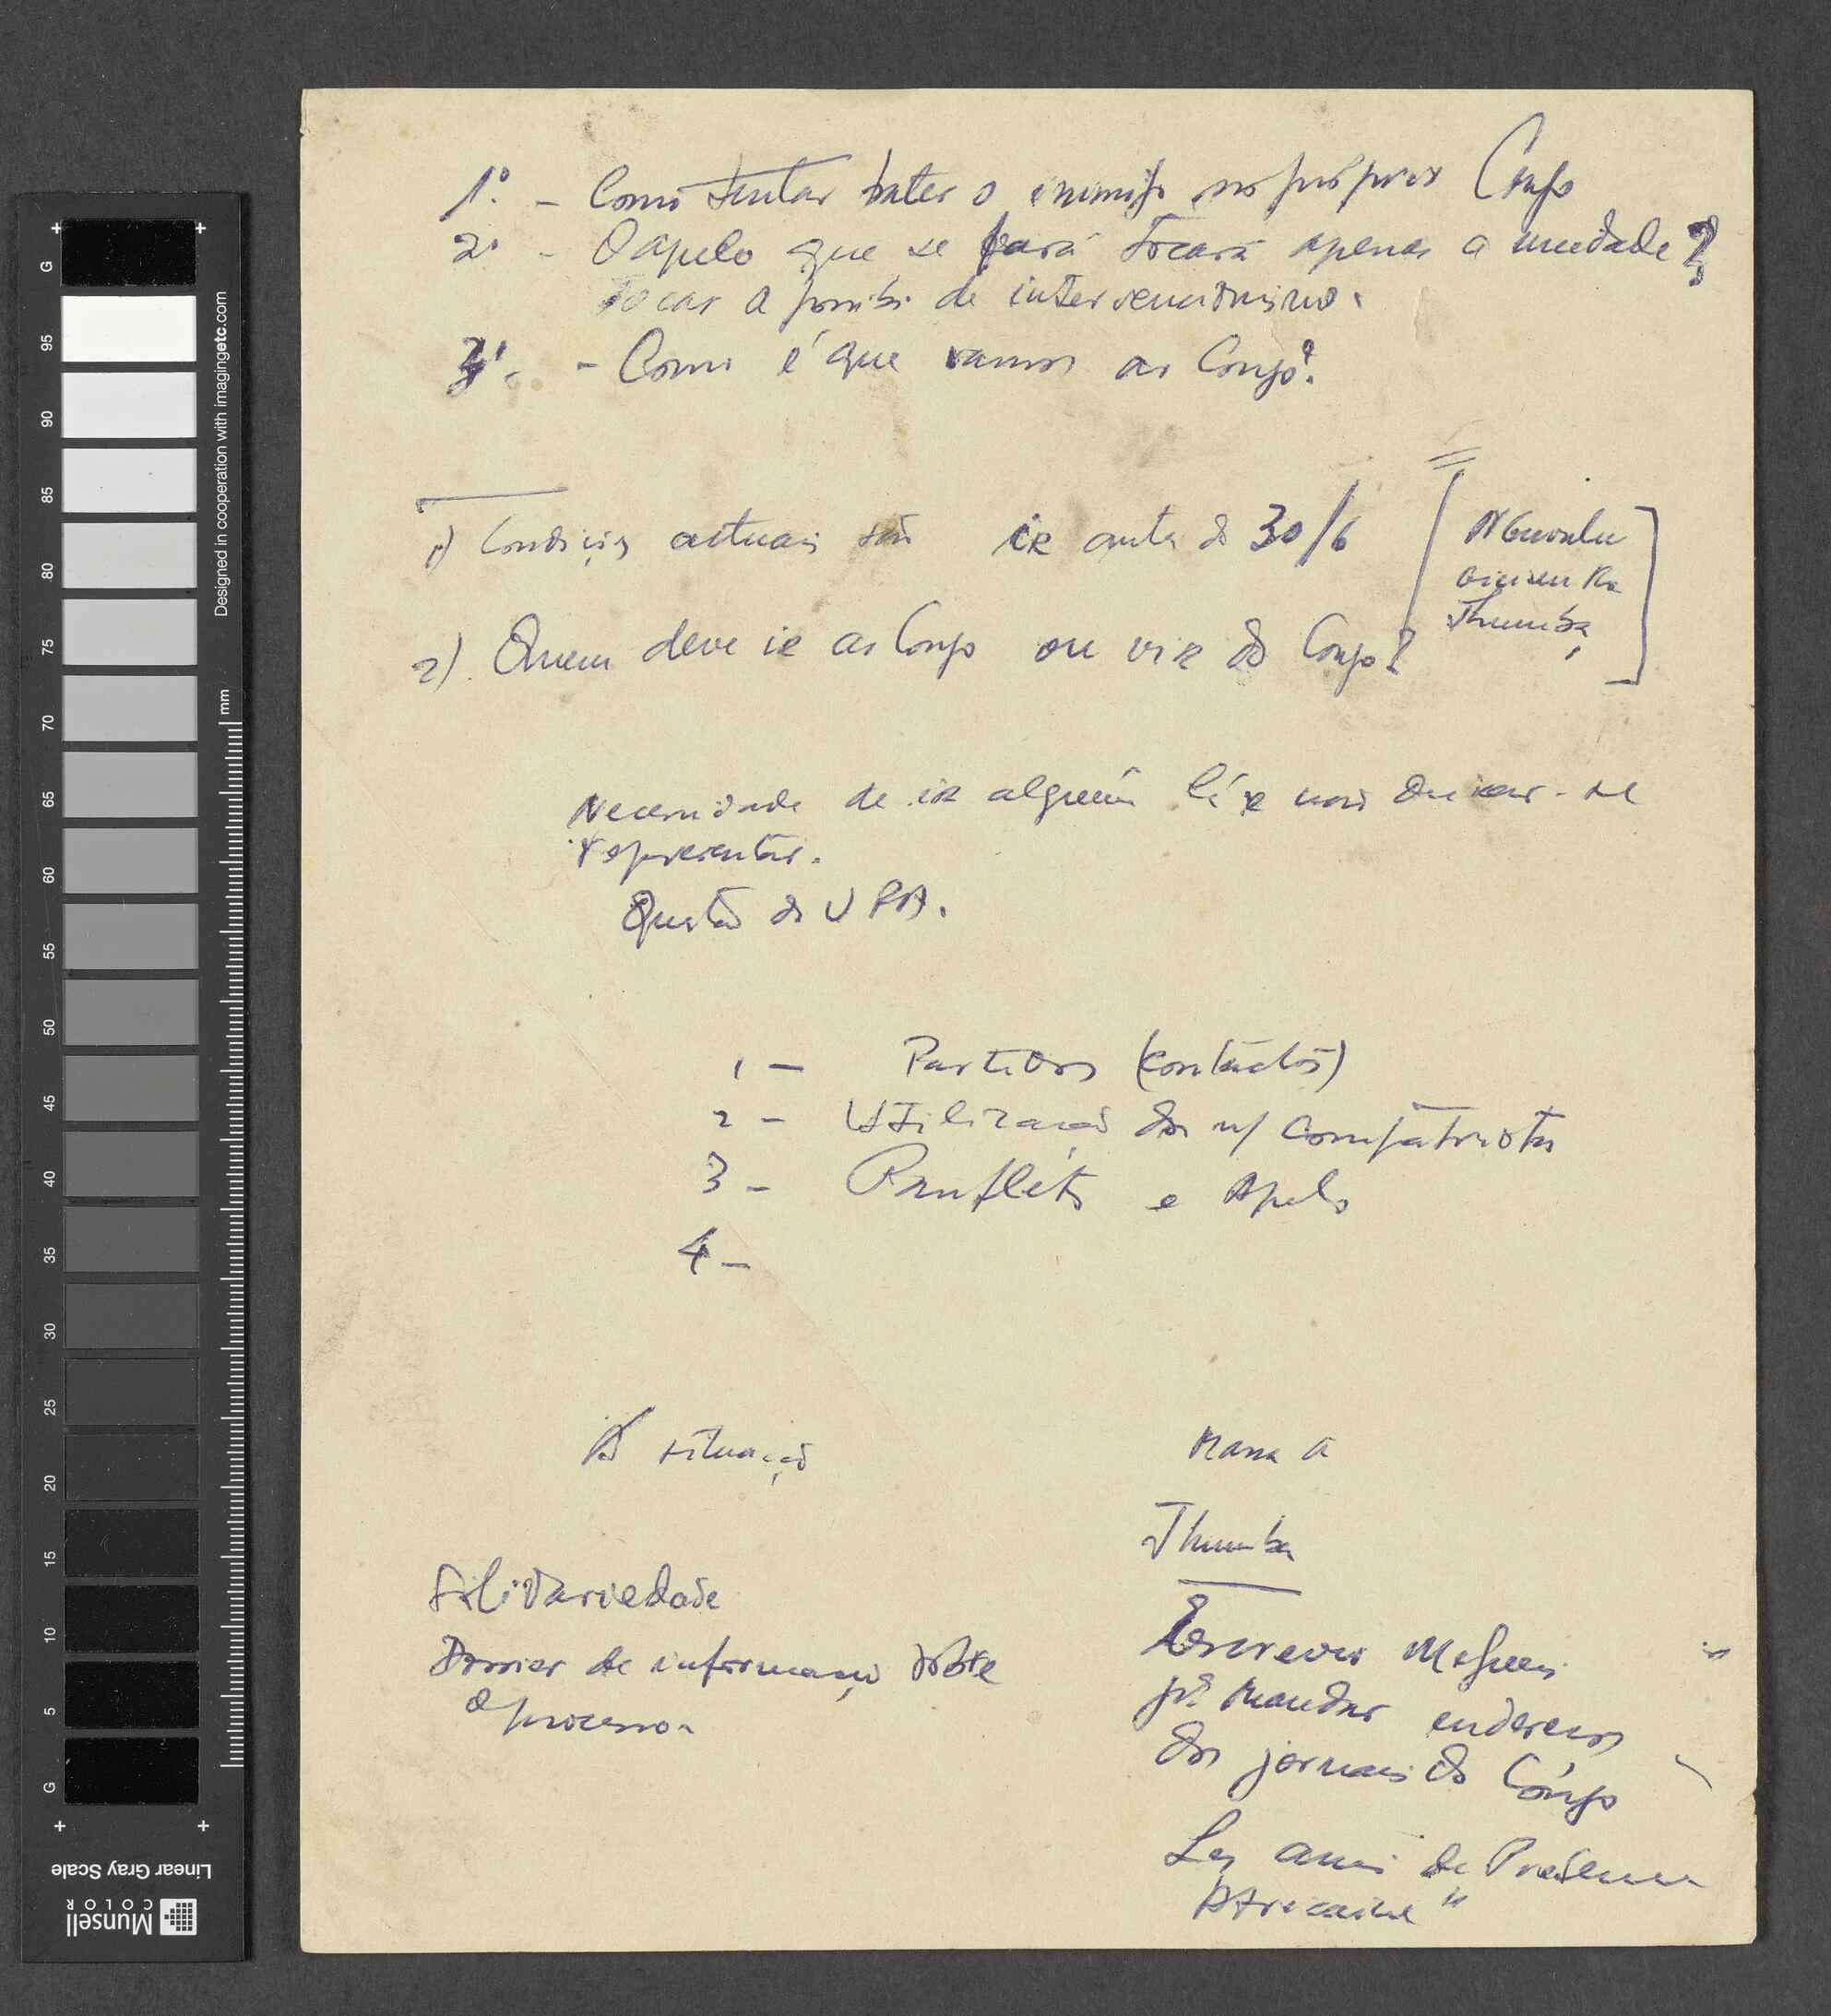 1º. - Como tentar bater o inimigo no próprio Congo
2º - O apelo que se fará tocará apenas a unidade?
Tocar a possib. de intervencionismo.
3º. - Como é que vamos ao Congo?
1) Condições actuais são ir antes de 30/6
2) Quem deve ir ao Congo ou vir do Congo?
Thumba
Necessidade de ir alguém lá e não deixar-se
representar.
Questão da UPA.
1 - Partidos (contactos)
2 - Utilização dos n/ compatriotas
3 - Panfletos e Apelos
4 -
A situação
Solidariedade
Dossier de informação sobre
o processo.
Thumba
Escrever
pª mandar endereços
dos jornais do Congo
Les amis de Présence
Africaine"
G
95
90
85
80
75
70
65
60
55
50
45
40
35
30
25
20
15
10
5
G
mm
Designed in cooperation with imagingetc.com
Linear Gray Scale
Munsell
COLOR